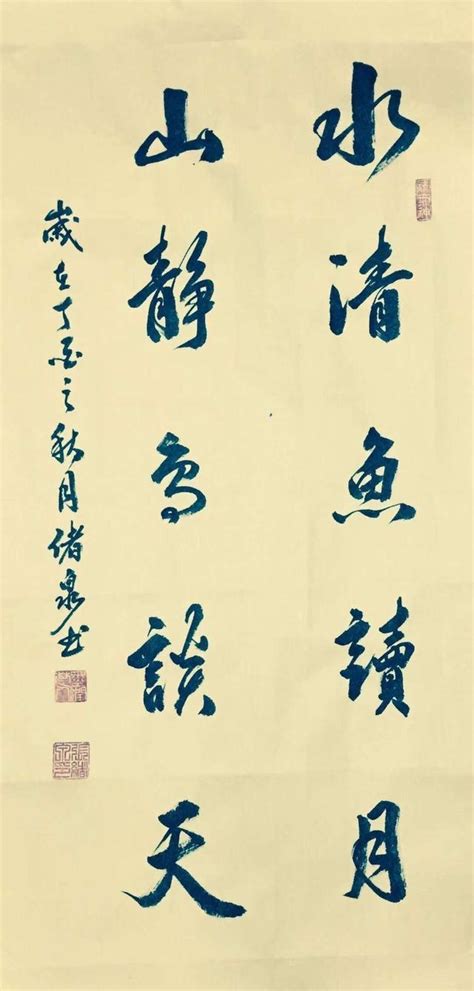 水清魚讀月
山靜鳥談天
歲在丁酉之秋月储泉书